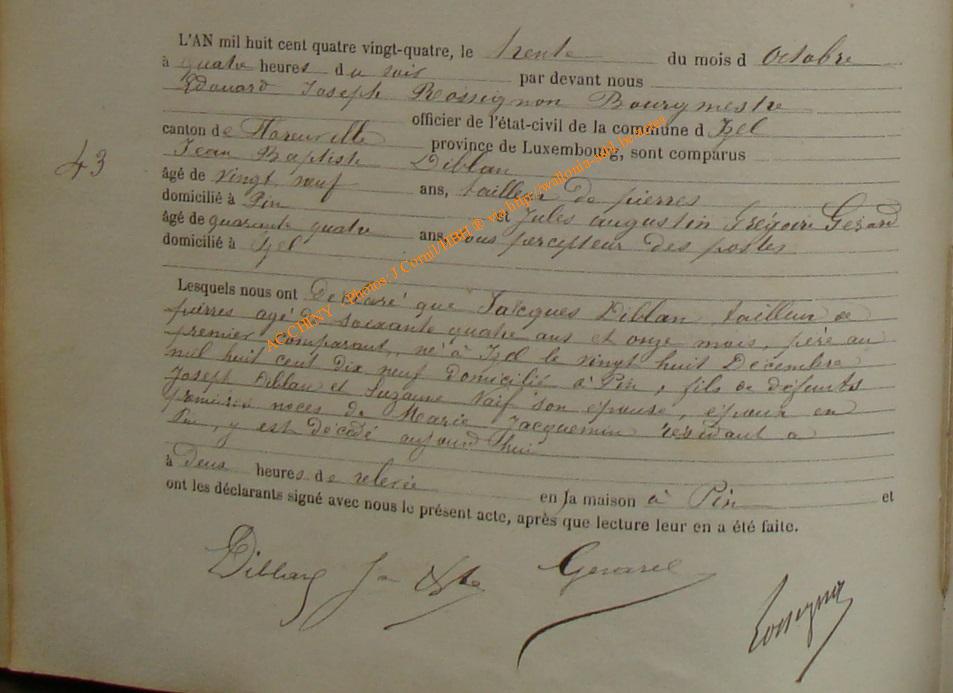 L'AN mil huit cent quatre vingt-quatre, le trente du mois d octobre
à quatre heures du soir par devant nous
Edouard Joseph Rossignon Bourgmestre
officier de l'état-civil de la commune d Izel
canton de Florenville province de Luxembourg, sont comparus
Jean Baptiste Diblan
âgé de vingt neuf ans, tailleur de pierres
domicilié à Pin et Jules augustin Grégoire Gérard
âgé de quarante quatre ans, sous percepteur des postes
domicilié à Izel
43
Lesquels nous ont Déclaré que Jacques Diblan, tailleur de
pierres agé de soixante quatre ans et onze mois, père au
premier comparant, né à Izel le vingt huit Décembre
mil huit cent dix neuf domicilié à Pin, fils de défunts
Joseph Diblan et Suzanne son épouse, époux en
premières noces de Marie Jacquemin résidant a
Pin, y est décédé aujourd'hui
à deux heures de relevée en sa maison à Pin et
ont les déclarants signé avec nous le présent acte, après que lecture leur en a été faite.
Diblan Jn Bte Gerard
Rossignon
ACCHINY Photos: J Cornil/HBH ® via http://wallonia-and-